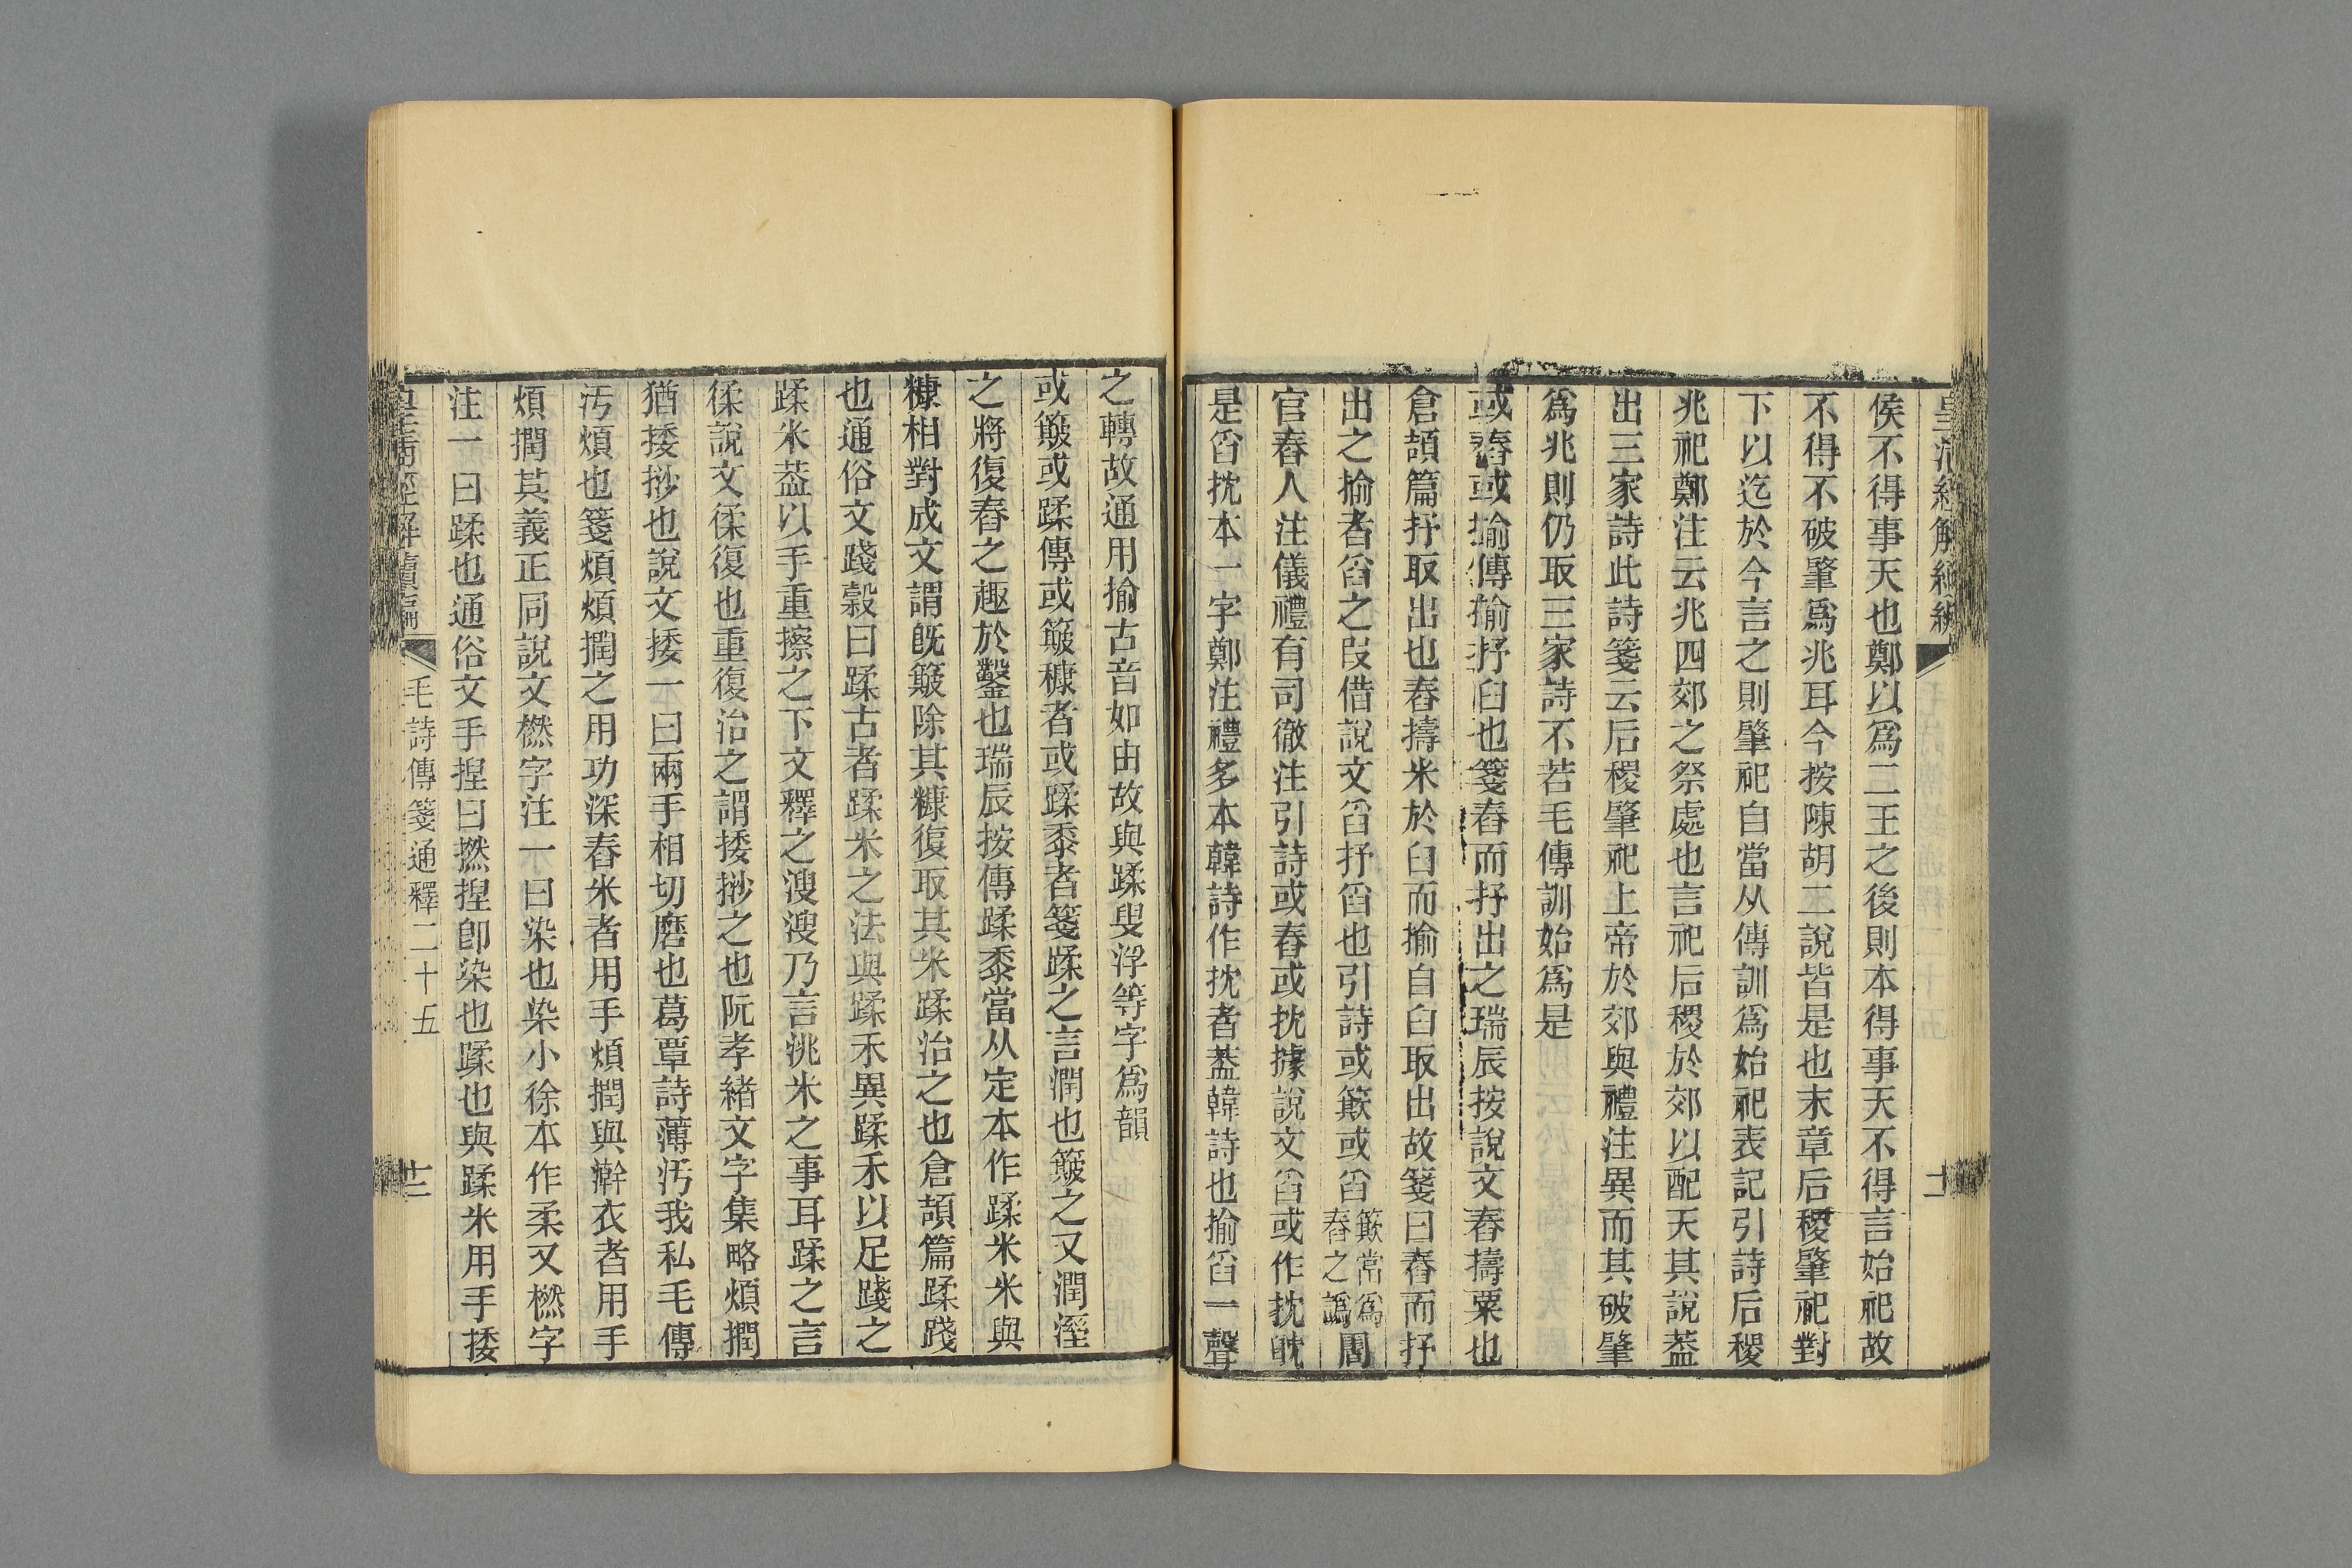 侯不得事天也鄭以爲二王之後則本得事天不得言始祀故
不得不破肇爲兆耳今按陳胡二說皆是也末章后稷肇祀對
下以迄於今言之則肇祀自當从傳訓爲始祀表記引詩后稷
兆祀鄭注云兆四郊之祭處也言祀后稷於郊以配天其說葢
出三家詩此詩箋云后稷肇祀上帝於郊與禮注異而其破肇
爲兆則仍取三家詩不若毛傳訓始爲是
或舂或揄傳揄抒臼也箋舂而抒出之瑞辰按說文舂擣粟也
倉頡篇抒取出也舂擣米於臼而揄自臼取出故箋曰舂而抒
出之揄者舀之叚借說文舀抒舀也引詩或簸或舀簸當爲舂之譌周
官舂人注儀禮有司徹注引詩或舂或抌據說文舀或作抌㲽
是舀抌本一字鄭注禮多本韓詩作抌者葢韓詩也揄舀一聲
之轉故通用揄古音如由故與蹂叟浮等字爲韻
或簸或蹂傳或簸穅者或蹂黍者箋蹂之言潤也簸之又潤溼
之將復舂之趣於鑿也瑞辰按傳蹂黍當从定本作蹂米米與
糠相對成文謂旣簸除其糠復取其米蹂治之也倉頡篇蹂踐
也通俗文踐穀曰蹂古者蹂米之法與蹂禾異蹂禾以足踐之
蹂米葢以手重擦之下文釋之溲溲乃言洮米之事耳蹂之言
徖說文徖復也重復治之謂捼挱之也阮孝緒文字集略煩撋
猶捼挱也說文捼一曰兩手相切磨也葛覃詩薄汚我私毛傳
汚煩也箋煩煩撋之用功深舂米者用手煩撋與澣衣者用手
煩撋其義正同說文橪字注一曰染也染小徐本作柔又橪字
注一曰蹂也通俗文手揑曰撚揑卽染也蹂也與蹂米用手捼
毛詩傳箋通釋二十五